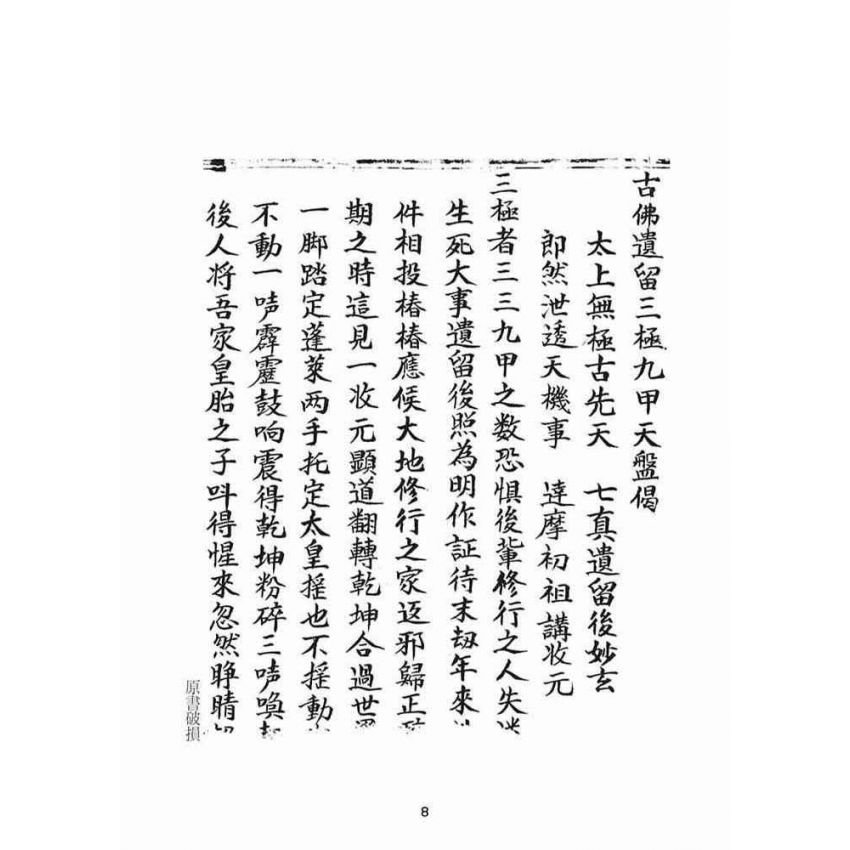 古佛遺留三極九甲天盤偈
太上無極古先天　七真遺留後妙玄
即然泄透天機事　達摩初祖講收元
三極者三三九甲之数恐惧後輩修行之人失迷
生死大事遺留後照為明作証待末刼年來
件相投椿椿應候大地修行之家返邪歸正
期之時這見一收元顯道翻轉乾坤合過世
一脚踏定蓬萊两手托定太皇搖也不搖動
不動一吽霹靂鼓响震得乾坤粉碎三吽喚
後人将吾家皇胎之子呌得惺來忽然睁睛
原書破損
8